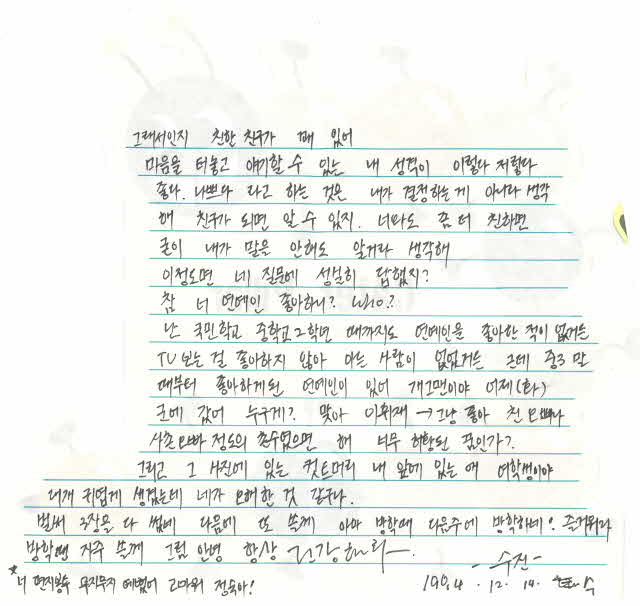 그래서인지 친한 친구가 꽤 있어
마음을 터놓고 얘기할 수 있는 내 성격이 이렇다 저렇다
좋다. 나쁘다 라고 하는 것은 내가 결정하는게 아니라 생각
해 친구가 되면 알 수 있지. 너와도 좀 더 친하면
굳이 내가 말을 안해도 알거라 생각해
이정도면 네 질문에 성실히 답했지?
참 너 연예인 좋아하니? Who?
난 국민학교 중학교2학년 때까지도 연예인을 좋아한 적이 없거든
TV 보는 걸 좋아하지 않아 아는 사람이 없었거든 근데 중3 말
때부터 좋아하게된 연예인이 있어 개그맨이야 어제(화)
군에 갔어 누구게? 맞아 이휘재 → 그냥 좋아 친 오빠나
사촌오빠 정도의 촌수였으면 해 너무 허황된 꿈인가?
그리고 그 사진에 있는 컷트머리 내 앞에 있는 애 여학생이야
되게 귀엽게 생겼는데 네가 오해한 것 같구나.
벌써 3장을 다 썼네 다음에 또 쓸게 아마 방학때 다음주에 방학하네! 즐거워라
방학땐 자주 쓸게 그럼 안녕 항상 건강해라
-수진-
*너 편지봉투 무지무지 예뻤어 고마워 정숙아! 1994. 12. 14.